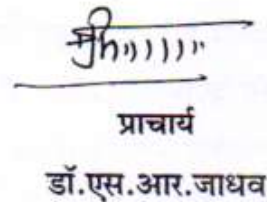 प्राचार्य
डॉ.एस.आर.जाधव